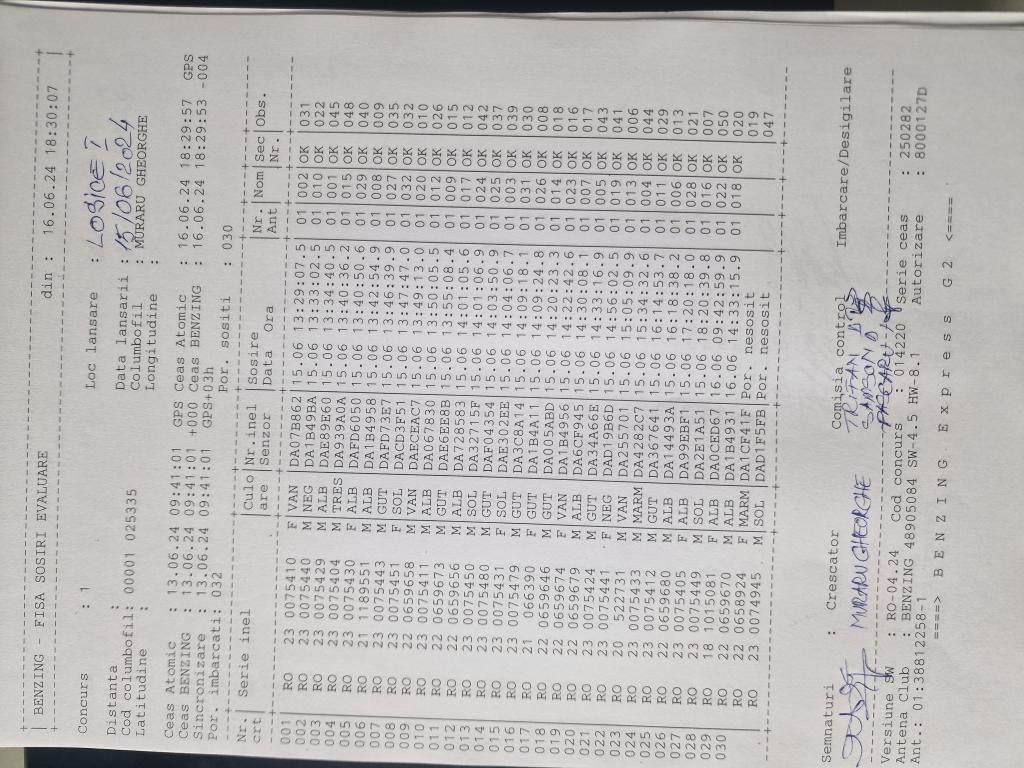 BENZING - FISA SOSIRI EVALUARE din : 16.06.24 18:30:07
Concurs : 1 Loc lansare : LOSICE I
Distanta : Data lansării : 15/06/2024
Cod columbofil: 00001 025335 Columbofil : MURARU GHEORGHE
Latitudine : Longitudine :
Ceas Atomic : 13.06.24 09:41:01 GPS Ceas Atomic : 16.06.24 18:29:57 GPS
Ceas BENZING : 13.06.24 09:41:01 +000 Ceas BENZING : 16.06.24 18:29:53 -004
Sincronizare : 13.06.24 09:41:01 GPS+03h
Por. imbarcati: 032 Por. sositi : 030
Nr. Serie inel Culo Nr.inel Sosire Nr. Nom Sec Obs.
crt are Senzor Data Ora Ant Nr.
001 RO 23 0075410 F VAN DA07B862 15.06 13:29:07.5 01 002 OK 031
002 RO 23 0075440 M NEG DA1B49BA 15.06 13:33:02.5 01 010 OK 022
003 RO 23 0075429 M ALB DAE89E60 15.06 13:34:40.5 01 001 OK 045
004 RO 23 0075404 M TRES DA939A0A 15.06 13:40:36.2 01 015 OK 048
005 RO 23 0075430 F ALB DAFD6050 15.06 13:40:50.6 01 029 OK 040
006 RO 21 1189531 M ALB DA1B4958 15.06 13:42:54.9 01 008 OK 009
007 RO 23 0075443 M GUT DAFD73E7 15.06 13:46:39.9 01 027 OK 035
008 RO 23 0075451 F SOL DACD3F51 15.06 13:47:47.0 01 032 OK 032
009 RO 22 0659658 M VAN DAECEAC7 15.06 13:49:13.0 01 020 OK 010
010 RO 23 0075411 M ALB DA067830 15.06 13:50:05.5 01 012 OK 026
011 RO 22 0659673 M GUT DAE6EE8B 15.06 13:55:08.4 01 009 OK 015
012 RO 22 0659656 M ALB DA728583 15.06 14:01:05.6 01 017 OK 012
013 RO 23 0075450 M SOL DA32715F 15.06 14:01:06.9 01 024 OK 042
014 RO 23 0075480 M GUT DAF04354 15.06 14:03:50.9 01 025 OK 037
015 RO 23 0075431 F SOL DAE302EE 15.06 14:04:06.7 01 003 OK 039
016 RO 23 0075479 M GUT DA3C8A14 15.06 14:09:18.1 01 031 OK 030
017 RO 21 066390 F GUT DA1B4A11 15.06 14:09:24.8 01 026 OK 008
018 RO 22 0659646 M GUT DA005ABD 15.06 14:20:23.3 01 014 OK 018
019 RO 22 0659674 F VAN DA1B4956 15.06 14:22:42.6 01 023 OK 016
020 RO 22 0659679 M ALB DA6CF945 15.06 14:30:08.1 01 007 OK 017
021 RO 23 0075424 M GUT DA34A66E 15.06 14:33:16.9 01 005 OK 043
022 RO 23 0075441 F NEG DAD19B6D 15.06 14:56:02.5 01 019 OK 041
023 RO 20 522731 M VAN DA255701 15.06 15:05:09.9 01 013 OK 006
024 RO 23 0075433 M MARM DA4282C7 15.06 15:14:32.6 01 004 OK 044
025 RO 23 0075412 M GUT DA367641 15.06 16:14:53.7 01 011 OK 029
026 RO 22 0659680 M ALB DA14493A 15.06 16:18:38.2 01 006 OK 013
027 RO 23 0075405 F ALB DA99EBF1 15.06 17:20:18.0 01 028 OK 021
028 RO 23 0075449 M SOL DA2E1A51 15.06 18:20:39.8 01 016 OK 007
029 RO 18 1015081 F ALB DA0CED67 16.06 09:42:59.9 01 022 OK 050
030 RO 22 0659670 M ALB DA1B4931 16.06 14:33:15.9 01 018 OK 020
RO 22 0658924 F MARM DA1CF41F Por. nesosit 019
RO 23 0074945 M SOL DAD1F5FB Por. nesosit 047
Semnaturi : Crescator Comisia control Imbarcare/Desigilare
MURARU GHEORGHE
Versiune SW : RO-04.24 Cod concurs : 014220 Serie ceas : 250282
Antena Club : BENZING 48905084 SW-4.5 HW-8.1 Autorizare : 8000127D
Ant.: 01:38812258-1
====> B E N Z I N G E x p r e s s G 2 <====